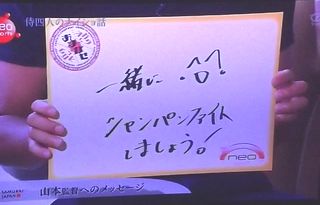 neo
侍四人のナイショ話
一緒に
シャンパンファイト
しましょう!
neo
SAMURAI
JAPAN
山本監督へのメッセージ